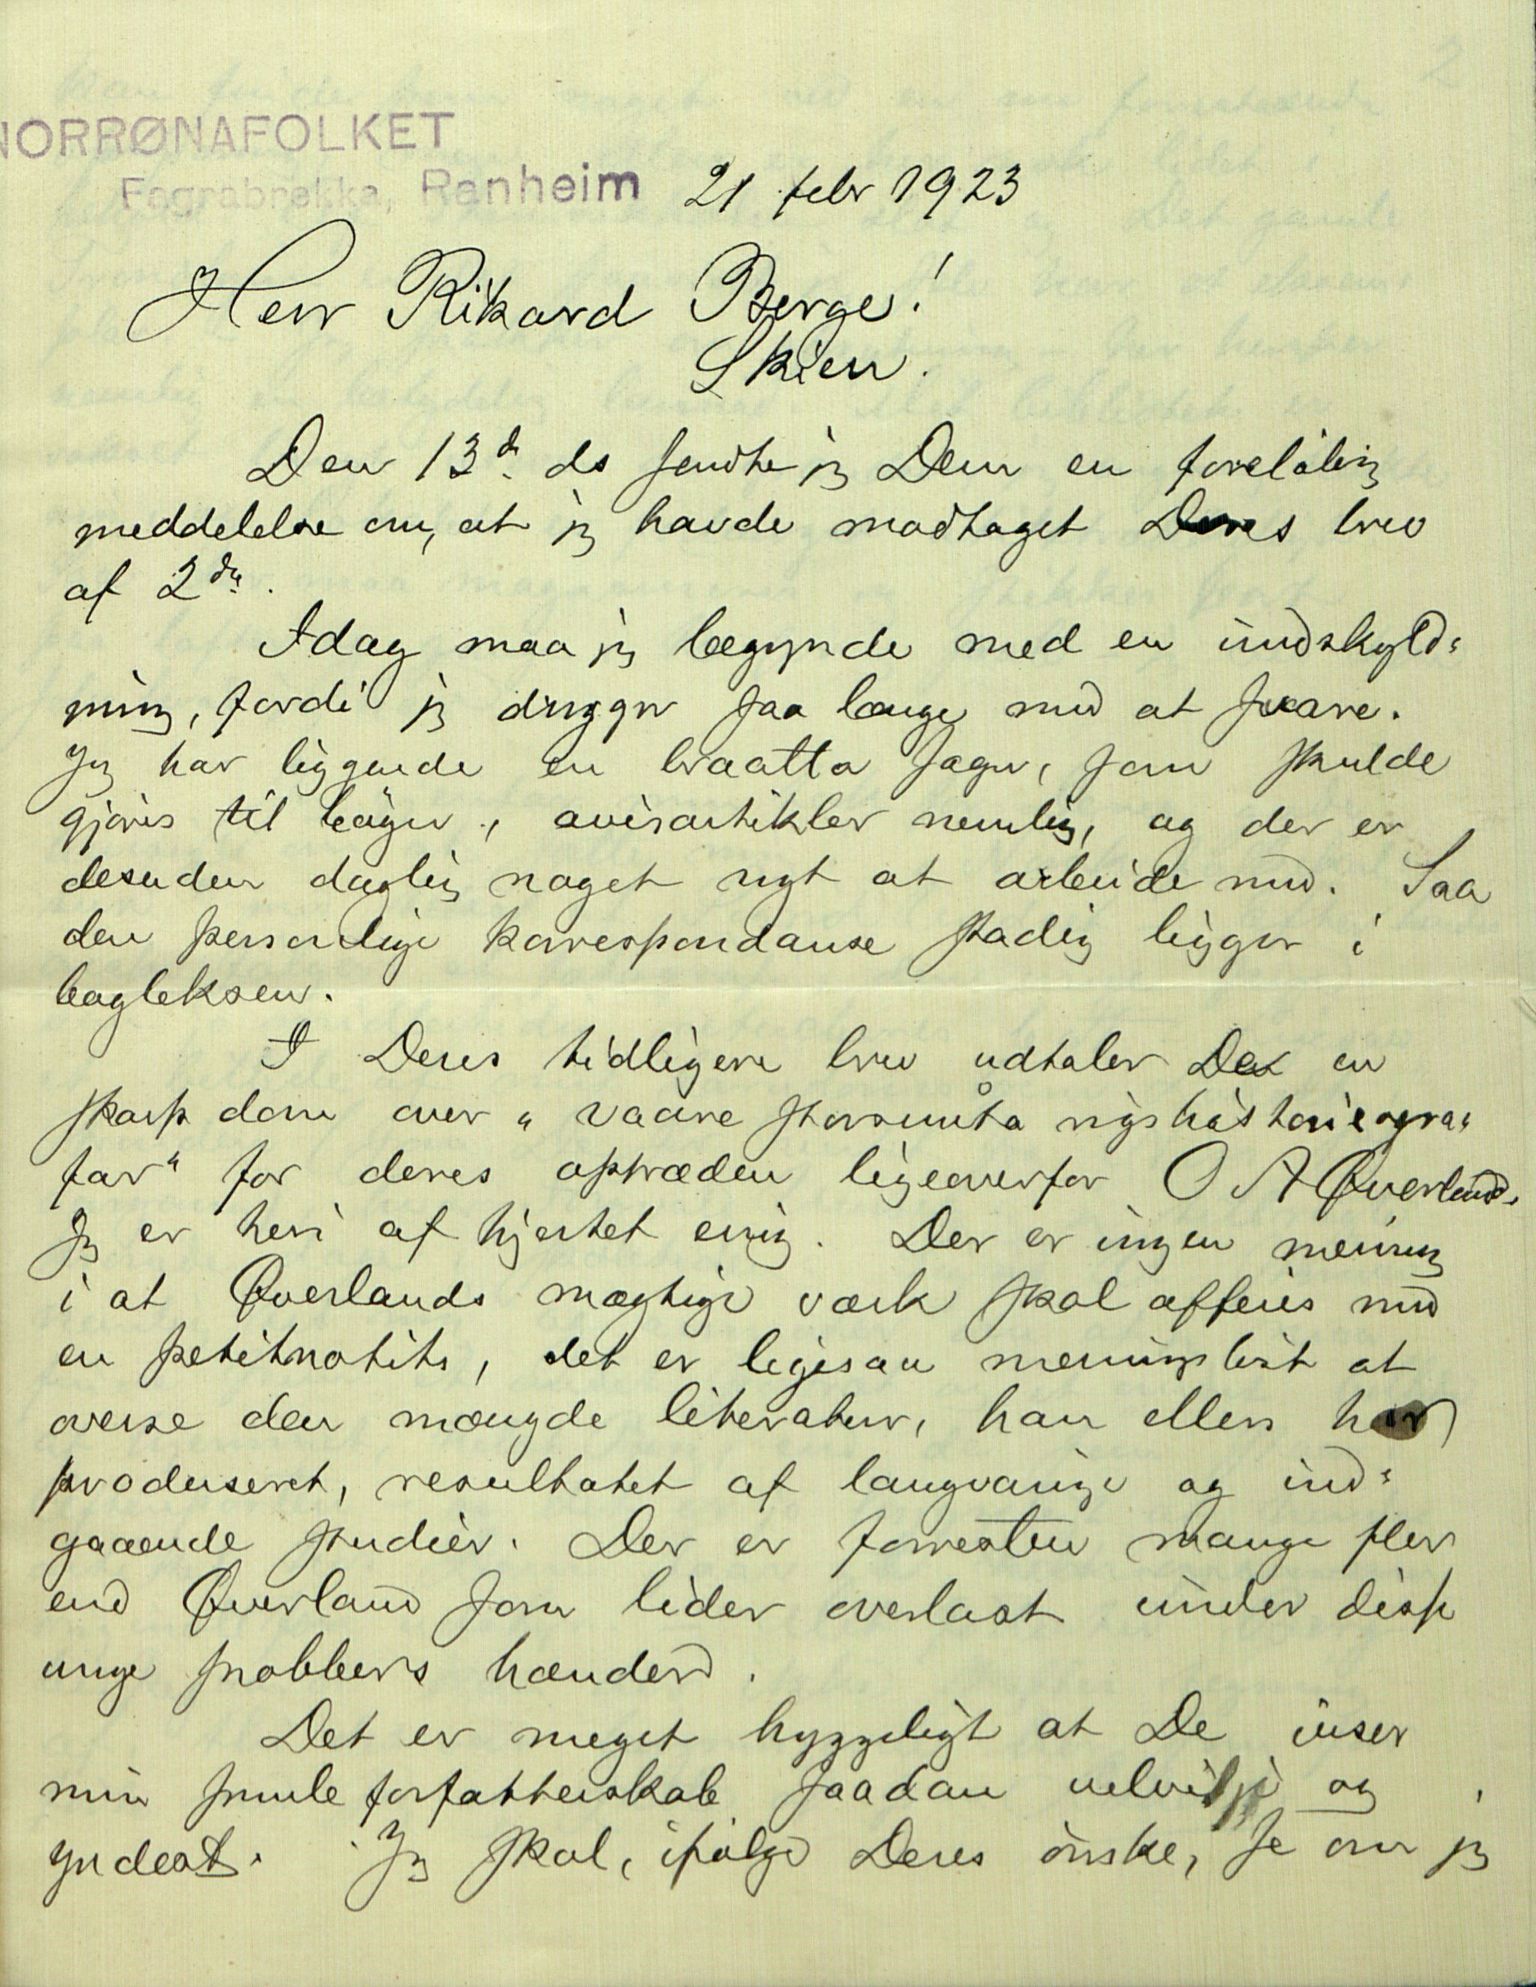 NORRØNAFOLKET
Fagrabrekka, Ranheim 21 febr 1923
Herr Rikard Berge!
Skien.
Den 13de ds sendte jeg Dem en foreløbig
meddelelse om, at jeg havde modtaget Deres brev
af 2den.
Idag maa jeg begynde med en undskyld-
ning, fordi jeg drygger saa længe med at svare.
Jeg har liggende en braatta sager, som skulde
gjøres til bøger, avisartikler nemlig, og der er
desuden daglig noget nyt at arbeide med. Saa
den personlige korrespondanse stadig ligger i
bagleksen.
I Deres tidligere brev udtaler De en
skarp dom over "vaare storsnuta rigshistoriogra-
far" for deres optræden ligeoverfor O A Øverland.
Jeg er heri af hjertet enig. Der er ingen mening
i at Øverlands mægtige værk skal affeies med
en petitnotits, det er ligesaa meningsløst at
overse den mængde literatur, han ellers har
produseret, resultatet af langvarige og ind-
gaaende studier. Der er forresten mange fler
end Øverland som lider overlast under disse
unge snobbers hænder.
Det er meget hyggeligt at De viser
min smule forfatterskab saadan velvilje og
yndest. Jeg skal, ifølge Deres ønske, se om jeg